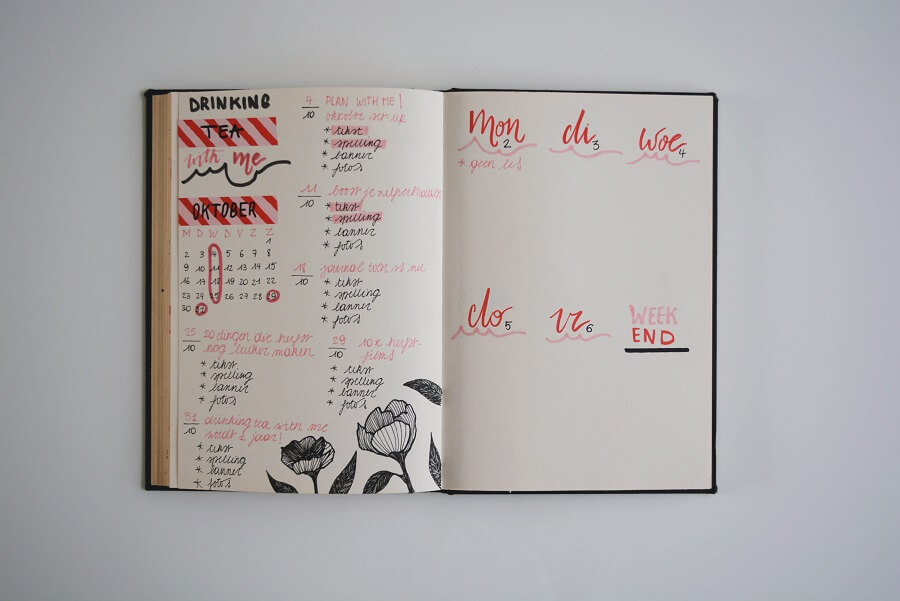 DRINKING
TEA
with me
OKTOBER
M D W D V Z Z
1
2 3 4 5 6 7 8
9 10 11 12 13 14 15
16 17 18 19 20 21 22
23 24 25 26 27 28 29
30 31
4/10 PLAN WITH ME |
oktober set up
* tekst
* spelling
* banner
* foto's
11/10 boost je zelfvertrouwen
* tekst
* spelling
* banner
* foto's
18/10 journal toen vs nu
* tekst
* spelling
* banner
* foto's
25/10 20 dingen die herfst
nog leuker maken
* tekst
* spelling
* banner
* foto's
29/10 10x herfst-
films
* tekst
* spelling
* banner
* foto's
31/10 drinking tea with me
wordt 1 jaar!
* tekst
* spelling
* banner
* foto's
Mon 2
* geen les
di 3
woe 4
do 5
vr 6
WEEK
END